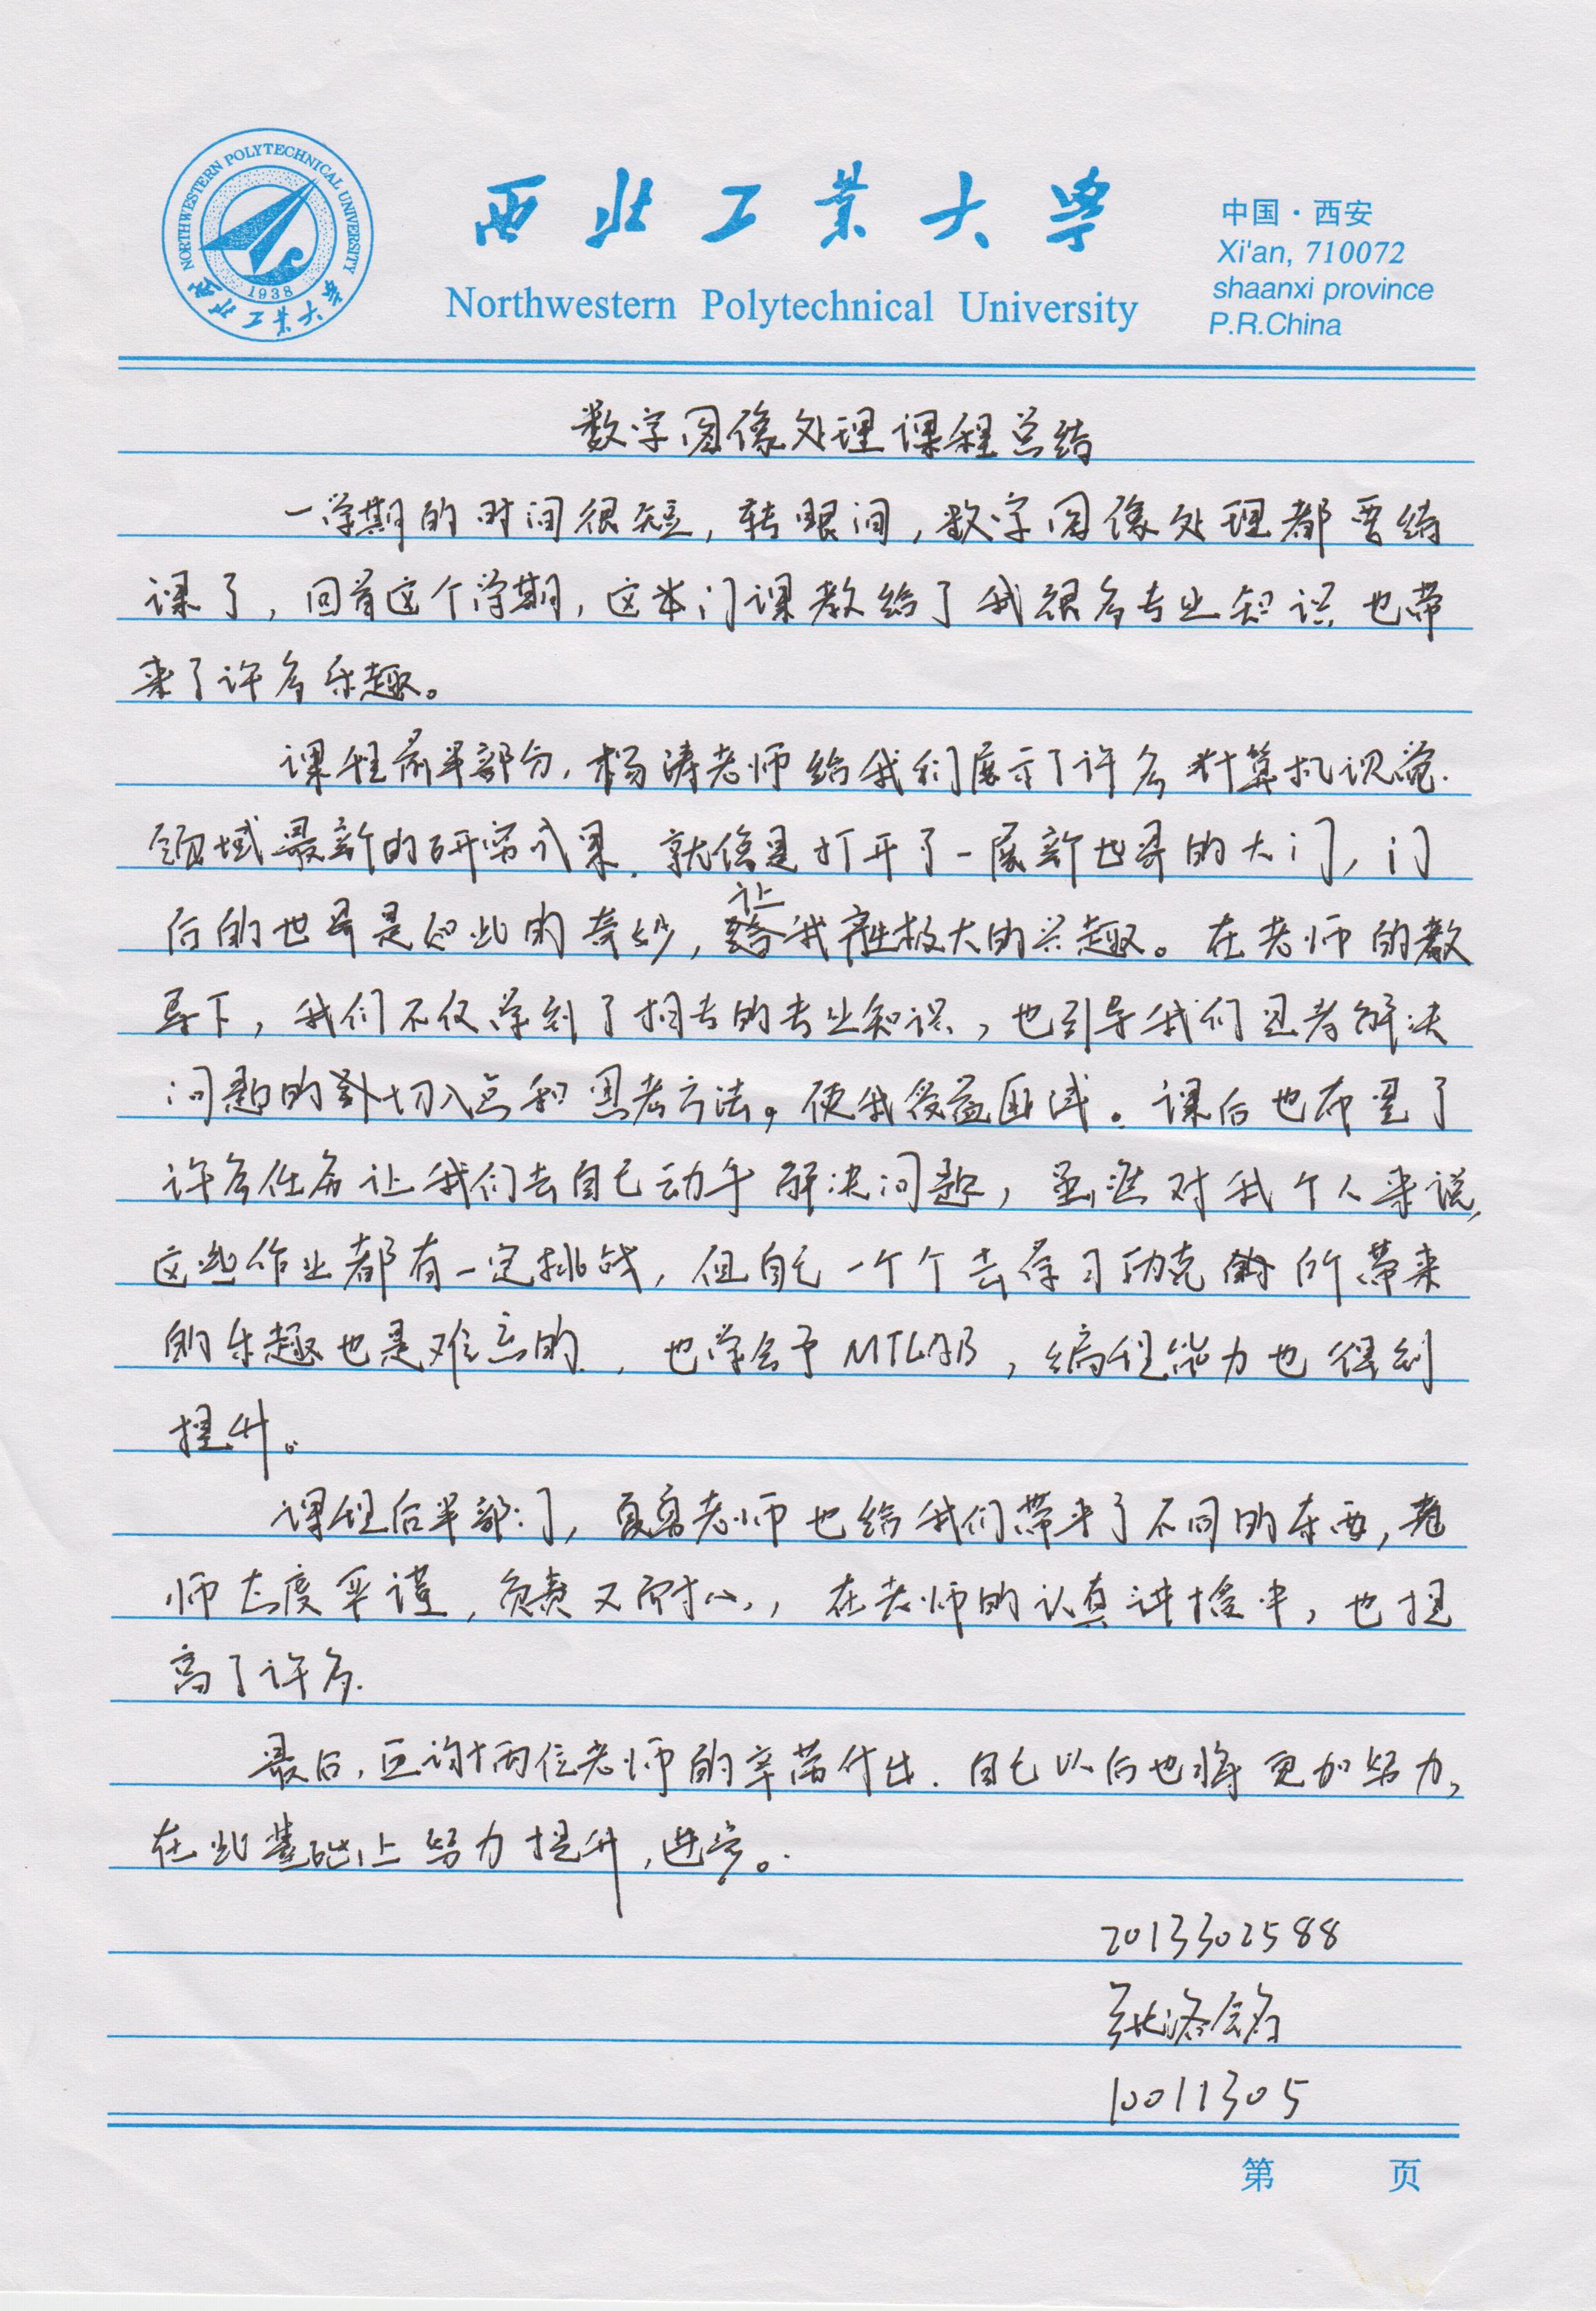 NORTHWESTERN POLYTECHNICAL UNIVERSITY
1938
西北工业大学
西北工业大学
Northwestern Polytechnical University
中国·西安
Xi'an, 710072
shaanxi province
P.R.China
数字图像处理课程总结
一学期的时间很短，转眼间，数字图像处理都要结
课了，回首这个学期，这本门课教给了我很多专业知识也带
来了许多乐趣。
课程前半部分，杨涛老师给我们展示了许多计算机视觉
领域最新的研究成果，就像是打开了一扇新世界的大门，门
后的世界是如此的奇妙，让我产生极大的兴趣。在老师的教
导下，我们不仅学到了相关的专业知识，也引导我们思考解决
问题的切入点和思考方法，使我受益匪浅。课后也布置了
许多任务让我们去自己动手解决问题，虽然对我个人来说，
这些作业都有一定挑战，但自己一个个去学习功克所带来
的乐趣也是难忘的，也学会了MTLAB，编程能力也得到
提升。
课程后半部门，夏勇老师也给我们带来了不同的东西，老
师态度严谨，负责又耐心，在老师的认真讲授中，也提
高了许多.
最后，感谢两位老师的辛苦付出. 自己以后也将更加努力，
在此基础上努力提升，进步。
2013302588
10011305
第 页